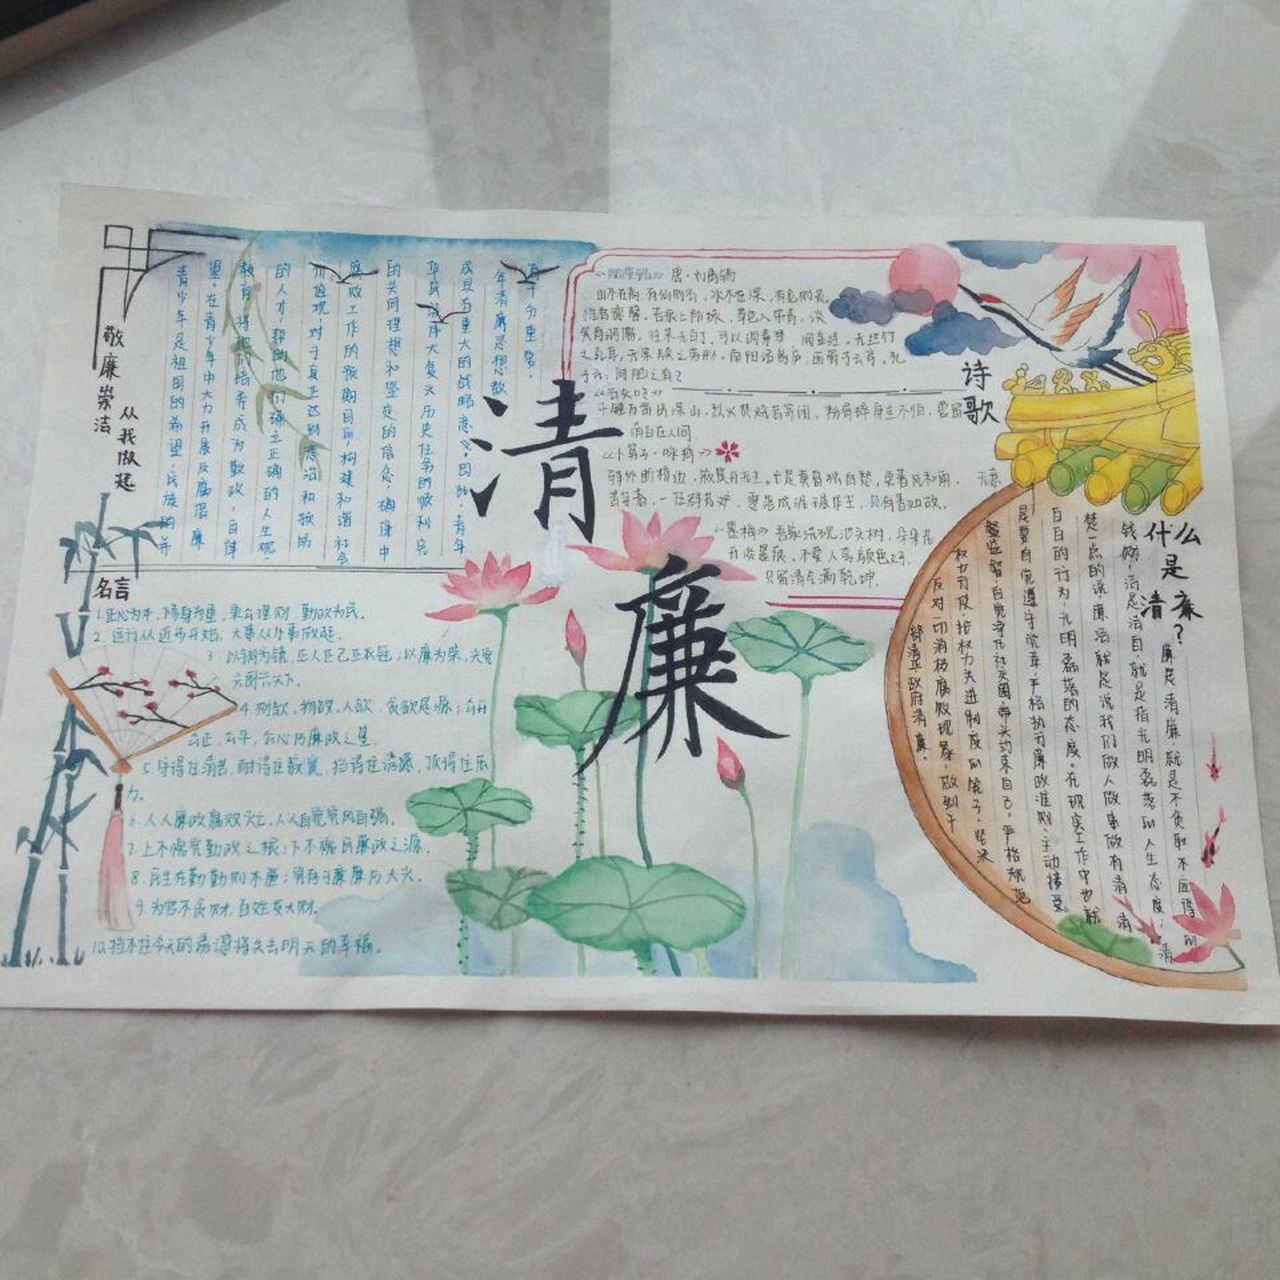 清廉
敬廉崇洁
从我做起
青少年是祖国的希望,民族的希
望,在青少年中大力开展反腐倡廉
教育,将他们培养成为敬政,自律
的人才,帮助他们确立正确的人生观,
价值观,对于真正达到惩治和预防
腐败工作的预期目的,构建和谐社会
的共同理想和坚定的信念,确保中
华民族伟大复兴历史任务的顺利完
成具有重大的战略意义,因此,青年
年清廉思想教
育十分重要。
名言
1.正心为本,修身为重,秉公理财,勤政为民。
2.远行从近步开始,大事从小事做起。
3.以铜为镜,正人正己正衣冠;以廉为荣,兴党
兴国兴天下。
4.财欲,物欲,人欲,贪欲是源;公开
公正,公平,公心乃廉政之星
5.守得住清苦,耐得住寂寞,挡得住诱惑,顶得住压
力。
6.人人廉政腐败灭,人人自觉党风自强。
7.上不愧党勤政之根;下不愧民廉政之源。
8.民生在勤勤则不匮;
9.为官不贪财,百姓发大财。
10.挡不住今天的诱惑将失去明天的幸福。
诗歌
《陋室铭》唐·刘禹锡
山不在高,有仙则名,水不在深,有龙则灵,
苔痕上阶绿,草色入帘青,谈
笑有鸿儒,往来无白丁,可以调素琴,阅金经,无丝竹
之乱耳,无案牍之劳形,南阳诸葛庐,西蜀子云亭,孔
子云:何陋之有?
千锤万凿出深山,烈火焚烧若等闲,粉骨碎身全不怕,要留
清白在人间
《卜算子·咏梅》
驿外断桥边,寂寞开无主。已是黄昏独自愁,更著风和雨。无意
苦争春,一任群芳妒,零落成泥碾作尘,只有香如故。
《墨梅》吾家洗砚池头树,朵朵花
开淡墨痕,不要人夸颜色好,
只留清气满乾坤
什么是清廉?
廉是清廉,就是不贪取不应得的
钱财;洁是洁自,就是指光明磊落的人生态度;清
楚一点的说廉洁就是说我们做人做事做有清清
白白的行为,光明磊落的态度。在现实工作中也就
是要自觉遵守党章,严格执行廉政准则,主动接受
监督,自觉净化社交圈,带头约束自己,严格规范
权力行使,把权力关进制度的笼子,坚决
反对一切消极腐败现象,做到干
部清正,政府清廉。